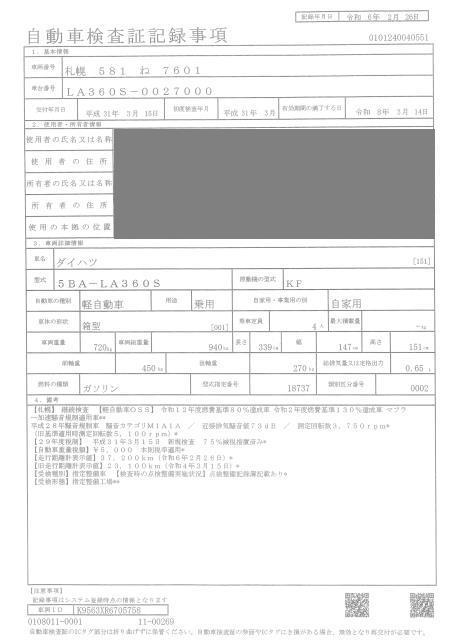 記録年月日 令和 6年 2月 26日
自動車検査証記録事項 0101240040551
1. 基本情報
車両番号 札幌 581 ね 7601
車台番号 LA360S-0027000
交付年月日 平成 31年 3月 15日 初度検査年月 平成 31年 3月 有効期間の満了する日 令和 8年 3月 14日
2. 使用者・所有者情報
使用者の氏名又は名称
使用者の住所
所有者の氏名又は名称
所有者の住所
使用の本拠の位置
3. 車両詳細情報
車名 ダイハツ [151]
型式 5BA-LA360S 原動機の型式 KF
自動車の種別 軽自動車 用途 乗用 自家用・事業用の別 自家用
車体の形状 箱型 [001] 乗車定員 4人 最大積載量 -kg
車両重量 720kg 車両総重量 940kg 長さ 339cm 幅 147cm 高さ 151cm
前軸重 450kg 後軸重 270kg 総排気量又は定格出力 0.65 L
燃料の種類 ガソリン 型式指定番号 18737 類別区分番号 0002
4. 備考
【札幌】 継続検査 【軽自動車OSS】 令和12年度燃費基準80%達成車 令和2年度燃費基準130%達成車 マフラ
ー加速騒音規制適用車**
平成28年騒音規制車 騒音カテゴリM1A1A / 近接排気騒音値73dB / 測定回転数3,750rpm*
(旧基準適用時測定回転数5,100rpm)*
【29年度税制】 平成31年3月15日 新規検査 75%減税措置済み*
【自動車重量税額】¥5,000 本則税率適用*
【走行距離計表示値】37,200km (令和6年2月26日)*
【旧走行距離計表示値】23,100km (令和4年3月15日)*
【受検種別】指定整備車 【検査時の点検整備実施状況】点検整備記録簿記載あり*
【受検形態】指定整備工場**
【注意事項】
記録事項はシステム登録時点の情報となります
車両ID K9563XR6705758
0108011-0001 11-00269
自動車検査証のICタグ部分は折り曲げずに保管ください。自動車検査証の券面やICタグにき損がある場合、無効となり再交付が必要です。